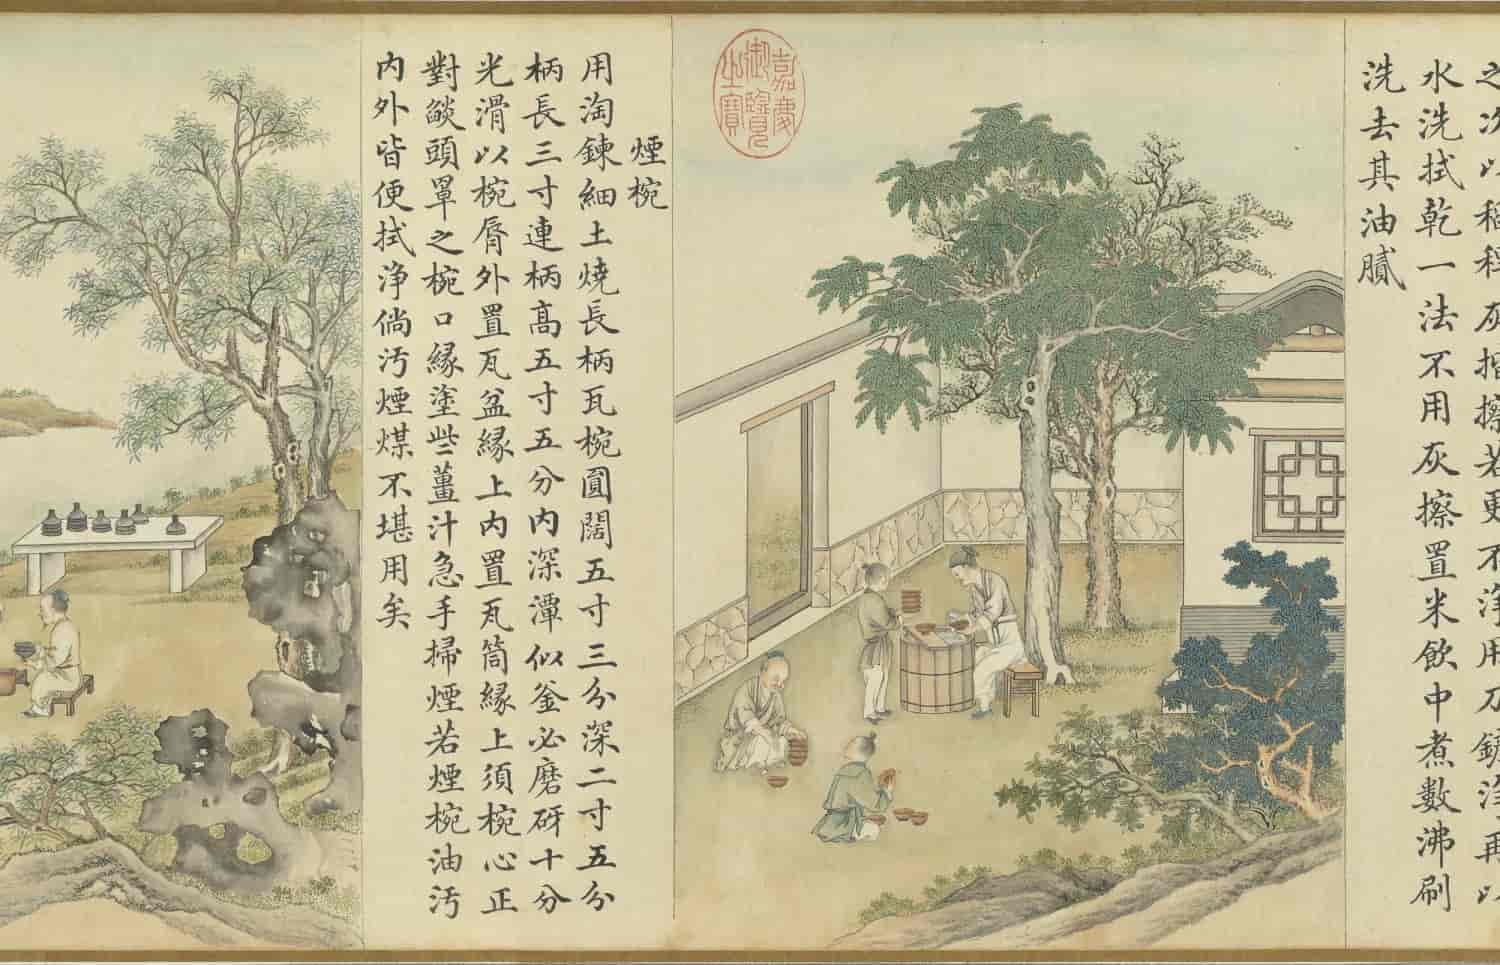 之次以稻稈灰揩擦若更不淨用刀鎊淨再以
水洗拭乾一法不用灰擦置米飲中煮數沸刷
洗去其油膩
嘉慶
御覽
之寶
煙椀
用淘鍊細土燒長柄瓦椀圓闊五寸三分深二寸五分
柄長三寸連柄高五寸五分內深潭似釜必磨砑十分
光滑以椀脣外置瓦盆緣上內置瓦筒緣上須椀心正
對燄頭罩之椀口緣塗些薑汁急手掃煙若煙椀油汚
內外皆便拭淨倘汚煙煤不堪用矣